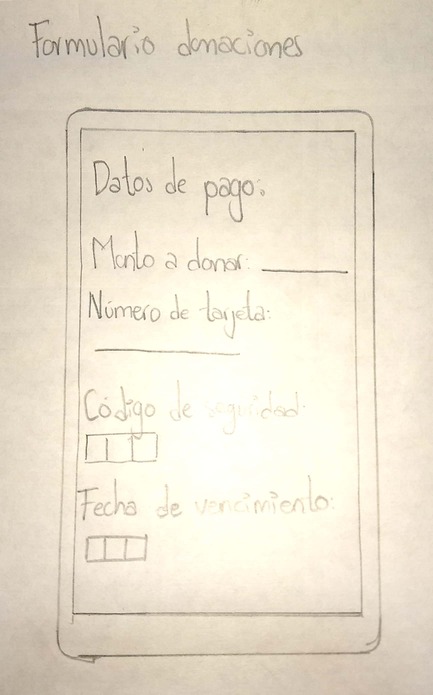 Formulario donaciones
Datos de pago:
Monto a donar:
Número de tarjeta:
Código de seguridad:
Fecha de vencimiento: